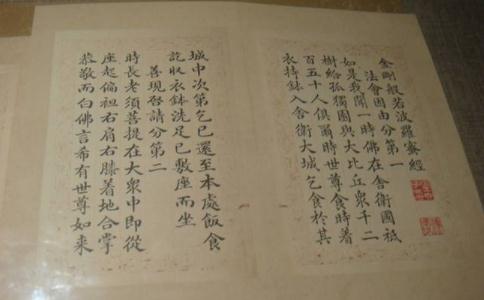 金剛般若波羅蜜經
法會因由分第一
如是我聞一時佛在舍衛國祇
樹給孤獨園與大比丘衆千二
百五十人俱爾時世尊食時着
衣持鉢入舍衛大城乞食於其
城中次第乞已還至本處飯食
訖收衣鉢洗足已敷座而坐
善現啓請分第二
時長老須菩提在大衆中即從
座起偏袒右肩右膝着地合掌
恭敬而白佛言希有世尊如來